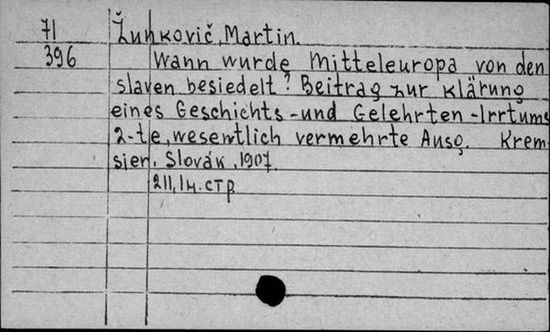 71 Žunkovič, Martin.
396 Wann wurde Mitteleuropa von den
slaven besiedelt? Beitrag zur klärung
eines Geschichts-und Gelehrten-Irrtums
2-te, wesentlich vermehrte Ausg. Krem-
sier. Slovák, 1907.
211, IH. стр